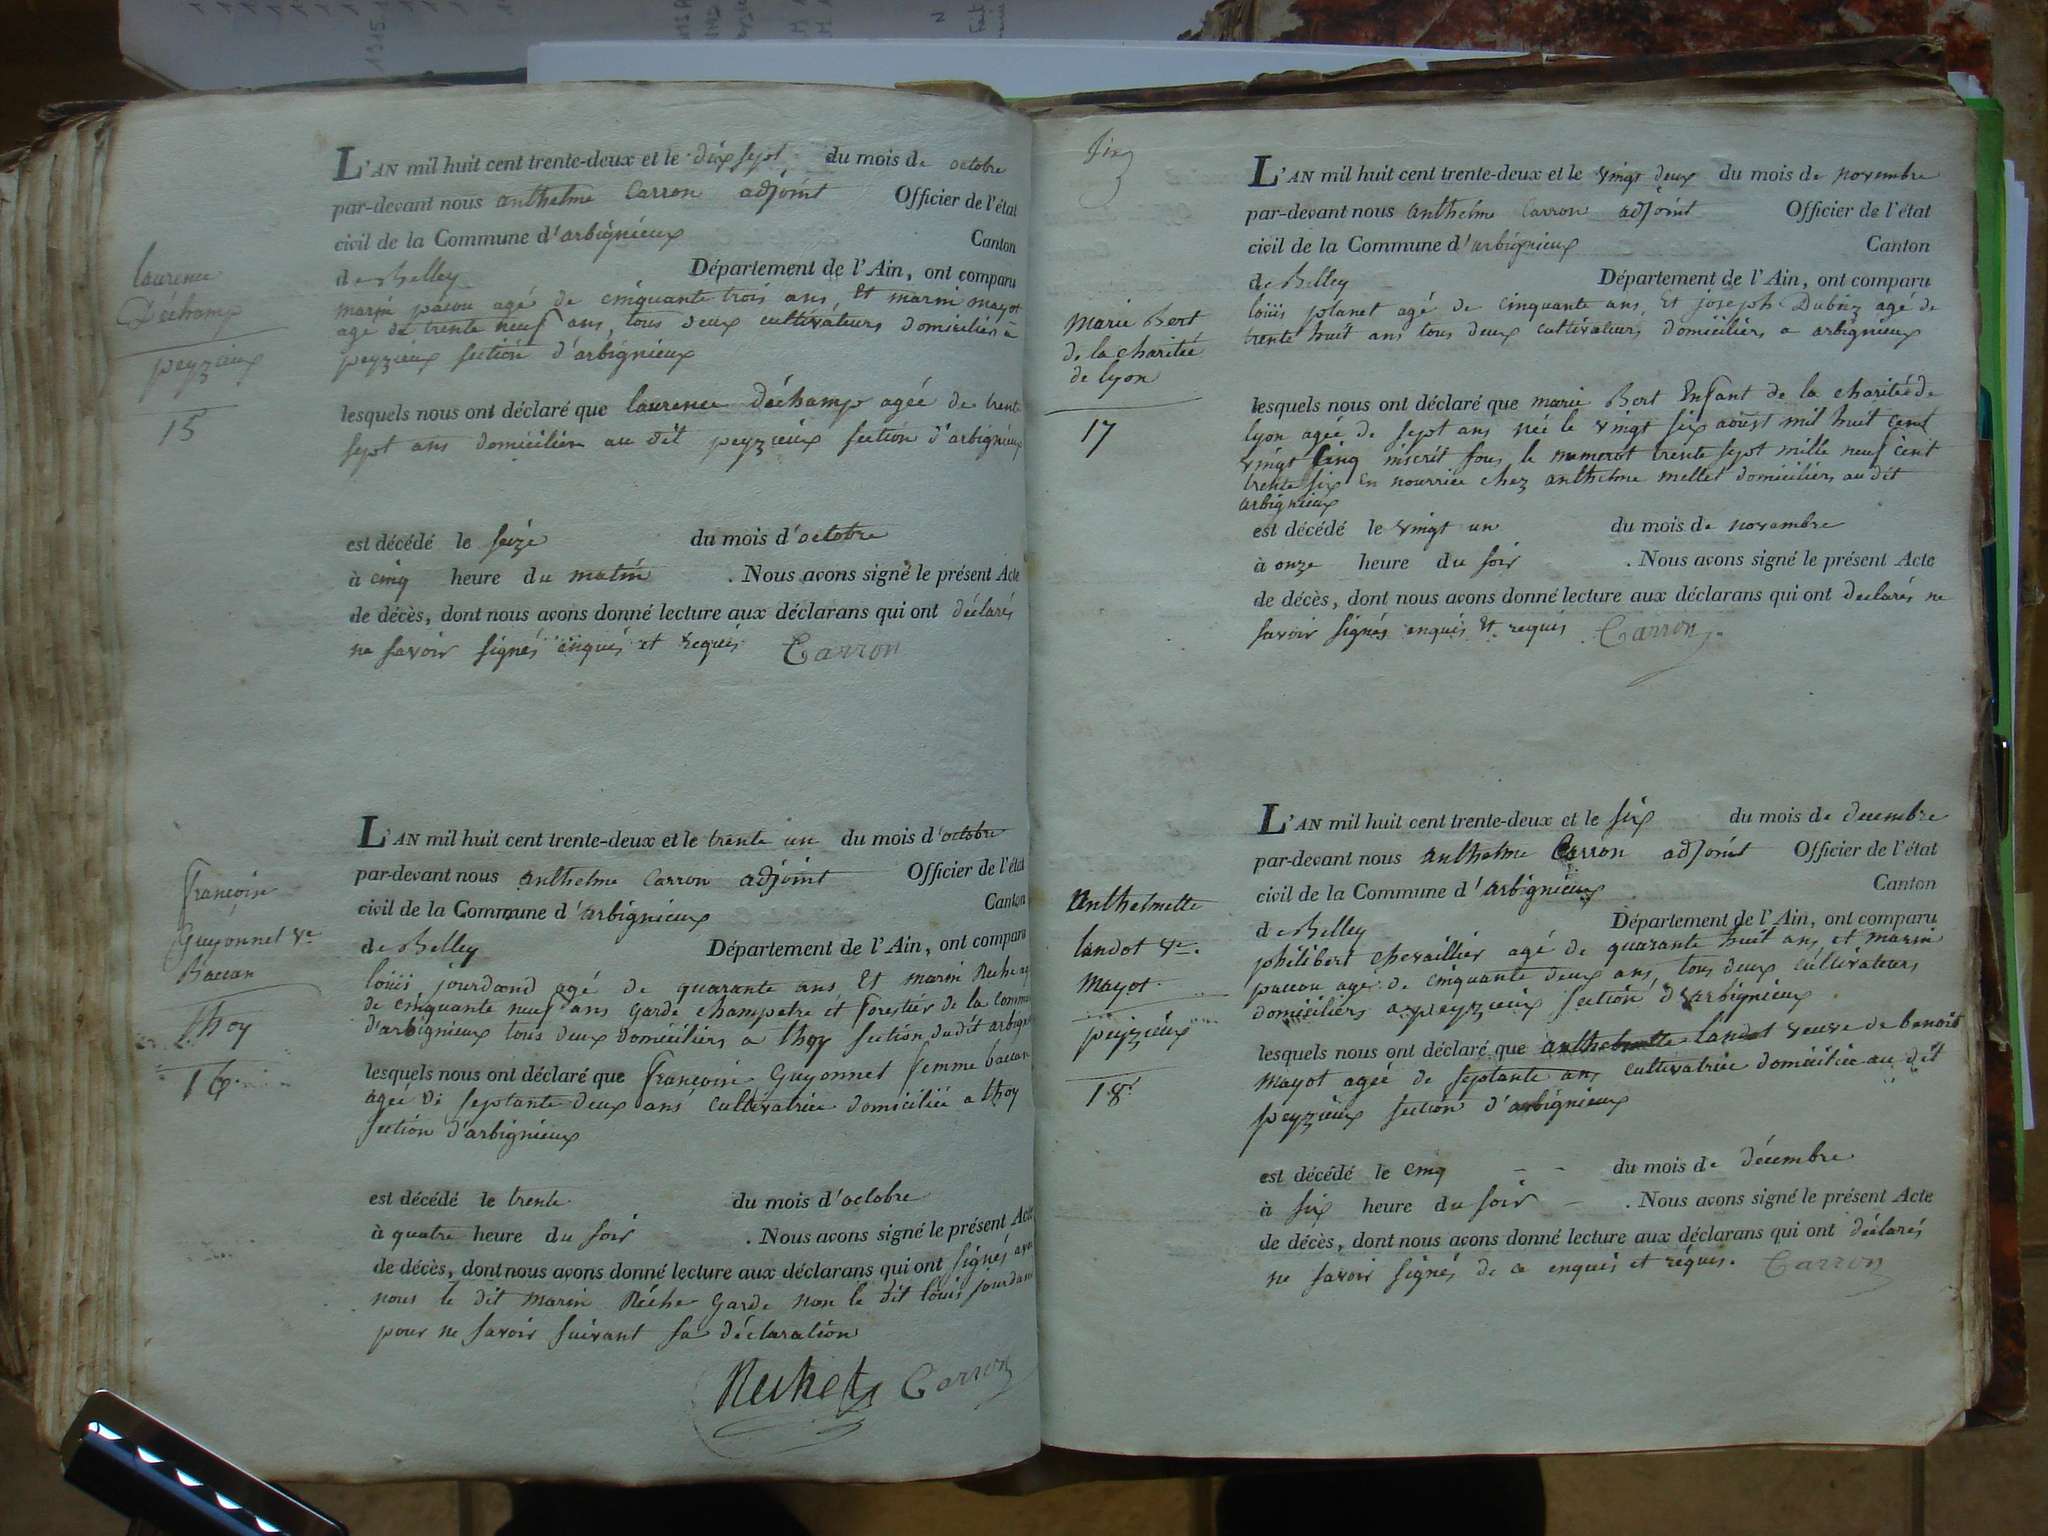 laurence
Déchamp
peyzieux
15
L'AN mil huit cent trente-deux et le dix sept du mois de octobre
par-devant nous anthelme Carron adjoint Officier de l'état
civil de la Commune d'arbignieux Canton
de Belley Département de l'Ain, ont comparu
marin pacou agé de cinquante trois ans, Et marin mayot
agé de trente neuf ans, tous deux cultivateurs domiciliés à
peyzieux section d'arbignieux
lesquels nous ont déclaré que laurence déchamp agée de trente
sept ans domiciliée au dit peyzieux section d'arbignieux
est décédé le seize du mois d'octobre
à cinq heure du matin . Nous avons signé le présent Acte
de décès, dont nous avons donné lecture aux déclarans qui ont déclarés
ne savoir signés enquis et requis Carron
françoise
Guyonnet ve
Baccan
thoy
16
L'AN mil huit cent trente-deux et le trente un du mois d'octobre
par-devant nous anthelme Carron adjoint Officier de l'état
civil de la Commune d'arbignieux Canton
de Belley Département de l'Ain, ont comparu
louis jourdand agé de quarante ans Et marin
de cinquante neuf ans garde champetre et forestier de la commu
d'arbignieux tous deux domiciliés a thoy section dudit
lesquels nous ont déclaré que françoise Guyonnet femme baccan
agée de septante deux ans cultivatrice domiciliée a thoy
section d'arbignieux
est décédé le trente du mois d'octobre
à quatre heure du soir . Nous avons signé le présent Acte
de décès, dont nous avons donné lecture aux déclarans qui ont signés avec
nous le dit marin Réche Garde non le dit louis jourdan
pour ne savoir suivant sa déclaration
Carron
Marie Bert
de la charitée
de lyon
17
L'AN mil huit cent trente-deux et le vingt deux du mois de novembre
par-devant nous anthelme Carron adjoint Officier de l'état
civil de la Commune d'arbignieux Canton
de Belley Département de l'Ain, ont comparu
louis planet agé de cinquante ans, Et joseph agé de
trente huit ans tous deux cultivateurs domiciliés a arbignieux
lesquels nous ont déclaré que marie Bert Enfant de la charitée de
lyon agée de sept ans née le vingt six aoust mil huit cent
vingt Cinq inscrit sous le numerot trente sept mille neuf cent
trente six en nourrice chez anthelme mellet domiciliers au dit
arbignieux
est décédé le vingt un du mois de novembre
à onze heure du soir . Nous avons signé le présent Acte
de décès, dont nous avons donné lecture aux déclarans qui ont declarés ne
savoir signés enquis Et requis Carron
anthelmette
landot ve
Mayot
peyzieux
18
L'AN mil huit cent trente-deux et le six du mois de decembre
par-devant nous anthelme Carron adjoint Officier de l'état
civil de la Commune d'arbignieux Canton
de Belley Département de l'Ain, ont comparu
philibert chevaillier agé de quarante huit ans, et marin
paccou age de cinquante deux ans, tous deux cultivateurs
domiciliers a peyzieux section d'arbignieux
lesquels nous ont déclaré que anthelmette landot veuve de benoit
mayot agée de septante ans cultivatrice domiciliée au dit
peyzieux section d'arbignieux
est décédé le cinq du mois de décembre
à six heure du soir . Nous avons signé le présent Acte
de décès, dont nous avons donné lecture aux déclarans qui ont déclarés
ne savoir signés de ce enquis et requis. Carron